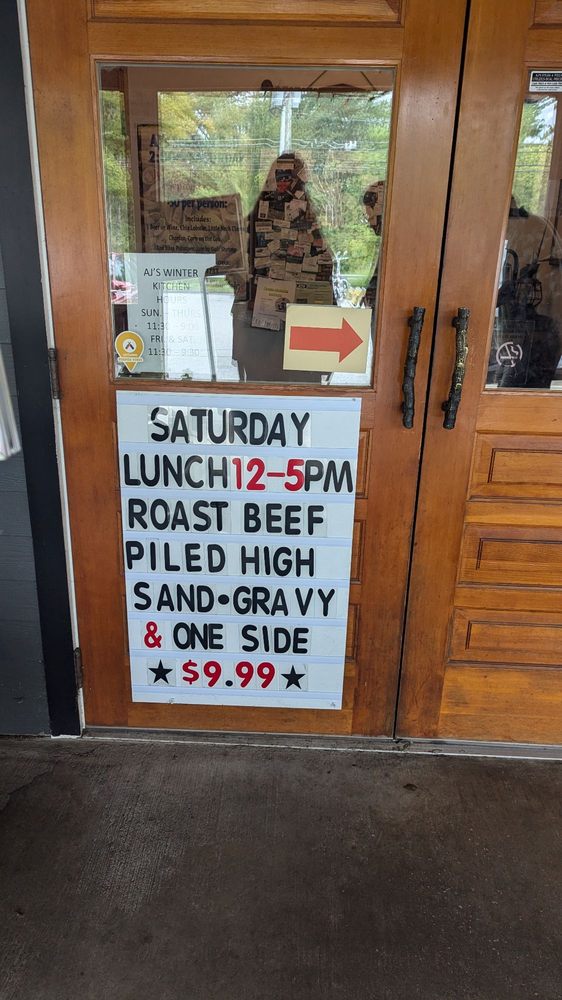 50 per person:
Includes:
AJ'S WINTER
KITCHEN
HOURS
SUN. - THURS
11:30 - 9:00
FRI & SAT.
11:30 - 9:30
SATURDAY
LUNCH 12-5PM
ROAST BEEF
PILED HIGH
SAND•GRAVY
& ONE SIDE
★ $9.99 ★